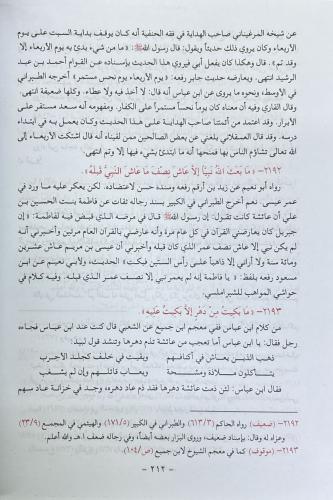 عن شيخه المرغيناني صاحب الهداية في فقه الحنفية أنه كان يوقف بداية السبت على يوم
الأربعاء وكان يروي ذلك حديثاً ويقول: قال رسول الله ﷺ: «ما من شيء بدئ به يوم الأربعاء إلا
وقد تم». قال وهكذا كان يفعل أبي فيروي هذا الحديث بإسناده عن القوام أحمد بن عبد
الرشيد انتهى. ويعارضه حديث جابر رفعه: «يوم الأربعاء يوم نحس مستمر» أخرجه الطبراني
في الأوسط، ونحوه ما يروى عن ابن عباس أنه قال: لا أخذ فيه ولا عطاء. وكلها ضعيفة انتهى.
وقال القاري وفيه أن معناه كان يوماً نحساً مستمراً على الكفار. ومفهومه أنه سعد مستقر على
الأبرار. وقد اعتمد من أئمتنا صاحب الهداية على هذا الحديث وكان يعمل به في ابتداء
درسه. وقال العسقلاني بلغني عن بعض الصالحين ممن لقيناه أنه قال اشتكت الأربعاء إلى
الله تعالى تشاؤم الناس بها فمنحها أنه ما ابتدئ بشيء فيها إلا وتم انتهى.
٢١٩٢ - «ما بعث الله نبياً إلا عاش نصف ما عاش النبي قبله».
رواه أبو نعيم عن زيد بن أرقم رفعه وسنده حسن لاعتضاده. لكن يعكر عليه ما ورد في
عمر عيسى. نعم أخرج الطبراني في الكبير بسند رجاله ثقات عن فاطمة بنت الحسين بن
علي أن عائشة كانت تقول: إن رسول الله ﷺ قال في مرضه الذي قبض فيه لفاطمة: «إن
جبريل كان يعارضني القرآن في كل عام مرة وأنه عارضني بالقرآن العام مرتين وأخبرني أنه
لم يكن نبي إلا عاش نصف عمر الذي كان قبله وأخبرني أن عيسى بن مريم عاش عشرين
ومائة سنة ولا أراني إلا ذاهباً على رأس الستين فبكت» الحديث، ولأبي نعيم عن ابن
مسعود رفعه بلفظ: «يا فاطمة إنه لم يعمر نبي إلا نصف عمر الذي قبله. وفيه كلام في
حواشي المواهب للشبراملسي.
٢١٩٣ - «ما بكيت من دهر إلا بكيت عليه».
من كلام ابن عباس ففي معجم ابن جميع عن الشعبي قال كنت عند ابن عباس فجاءه
رجل فقال: يا ابن عباس أما تعجب من عائشة تذم دهرها وتنشد قول لبيد:
ذهب الذين يعاش في أكنافهم وبقيت في خلف كجلد الأجرب
يتأكلون ملاذة ومشحة ويعاب قائلهم وإن لم يشغب
فقال ابن عباس: لئن ذمت عائشة دهرها فقد ذم عاد دهره، وجد في خزانة عاد سهم
٢١٩٢ - (ضعيف) رواه الحاكم (٦١٣/٣) والطبراني في الكبير (١٧١/٥) والهيثمي في المجمع (٢٣/٩)
وعزاه له وقال: بإسناد ضعيف، وروى البزار بعضه أيضاً، وفي رجاله ضعف ا.هـ والله أعلم.
٢١٩٣ - (موقوف) كما في معجم الشيوخ لابن جميع (ص/١٠٤).
- ٢١٢ -